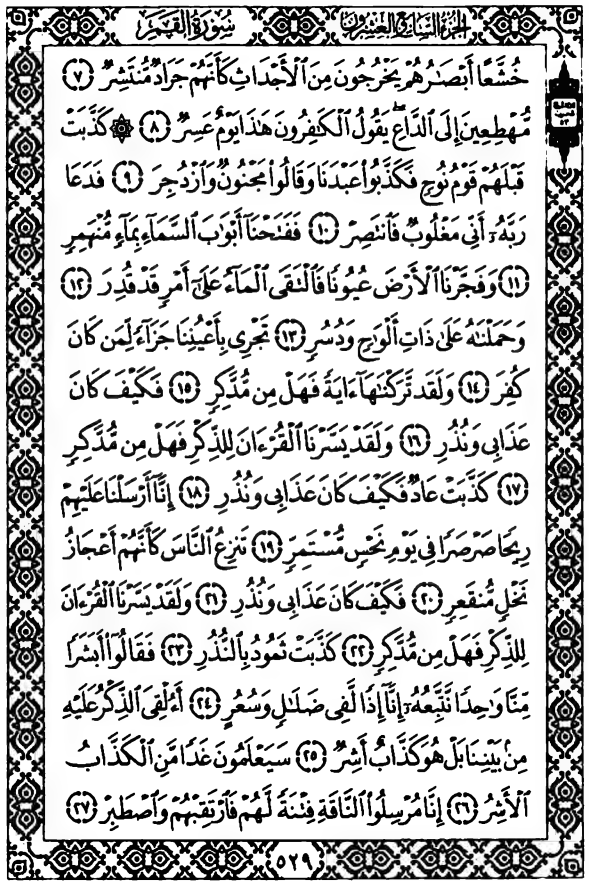 سُورَةُ القَمَرِ الجُزءُ السَّابِعُ وَالعِشْرُونَ
خُشَّعًا أَبْصَٰرُهُمْ يَخْرُجُونَ مِنَ ٱلْأَجْدَاثِ كَأَنَّهُمْ جَرَادٌ مُّنتَشِرٌ ٧
مُّهْطِعِينَ إِلَى ٱلدَّاعِ ۖ يَقُولُ ٱلْكَٰفِرُونَ هَٰذَا يَوْمٌ عَسِرٌ ٨ ۞ كَذَّبَتْ
قَبْلَهُمْ قَوْمُ نُوحٍ فَكَذَّبُوا۟ عَبْدَنَا وَقَالُوا۟ مَجْنُونٌ وَٱزْدُجِرَ ٩ فَدَعَا
رَبَّهُۥٓ أَنِّى مَغْلُوبٌ فَٱنتَصِرْ ١٠ فَفَتَحْنَآ أَبْوَٰبَ ٱلسَّمَآءِ بِمَآءٍ مُّنْهَمِرٍ
١١ وَفَجَّرْنَا ٱلْأَرْضَ عُيُونًا فَٱلْتَقَى ٱلْمَآءُ عَلَىٰٓ أَمْرٍ قَدْ قُدِرَ ١٢
وَحَمَلْنَٰهُ عَلَىٰ ذَاتِ أَلْوَٰحٍ وَدُسُرٍ ١٣ تَجْرِى بِأَعْيُنِنَا جَزَآءً لِّمَن كَانَ
كُفِرَ ١٤ وَلَقَد تَّرَكْنَٰهَآ ءَايَةً فَهَلْ مِن مُّدَّكِرٍ ١٥ فَكَيْفَ كَانَ
عَذَابِى وَنُذُرِ ١٦ وَلَقَدْ يَسَّرْنَا ٱلْقُرْءَانَ لِلذِّكْرِ فَهَلْ مِن مُّدَّكِرٍ
١٧ كَذَّبَتْ عَادٌ فَكَيْفَ كَانَ عَذَابِى وَنُذُرِ ١٨ إِنَّآ أَرْسَلْنَا عَلَيْهِمْ
رِيحًا صَرْصَرًا فِى يَوْمِ نَحْسٍ مُّسْتَمِرٍّ ١٩ تَنزِعُ ٱلنَّاسَ كَأَنَّهُمْ أَعْجَازُ
نَخْلٍ مُّنقَعِرٍ ٢٠ فَكَيْفَ كَانَ عَذَابِى وَنُذُرِ ٢١ وَلَقَدْ يَسَّرْنَا ٱلْقُرْءَانَ
لِلذِّكْرِ فَهَلْ مِن مُّدَّكِرٍ ٢٢ كَذَّبَتْ ثَمُودُ بِٱلنُّذُرِ ٢٣ فَقَالُوٓا۟ أَبَشَرًا
مِّنَّا وَٰحِدًا نَّتَّبِعُهُۥٓ إِنَّآ إِذًا لَّفِى ضَلَٰلٍ وَسُعُرٍ ٢٤ أَءُلْقِىَ ٱلذِّكْرُ عَلَيْهِ
مِنۢ بَيْنِنَا بَلْ هُوَ كَذَّابٌ أَشِرٌ ٢٥ سَيَعْلَمُونَ غَدًا مَّنِ ٱلْكَذَّابُ
ٱلْأَشِرُ ٢٦ إِنَّا مُرْسِلُوا۟ ٱلنَّاقَةِ فِتْنَةً لَّهُمْ فَٱرْتَقِبْهُمْ وَٱصْطَبِرْ ٢٧
٥٢٩